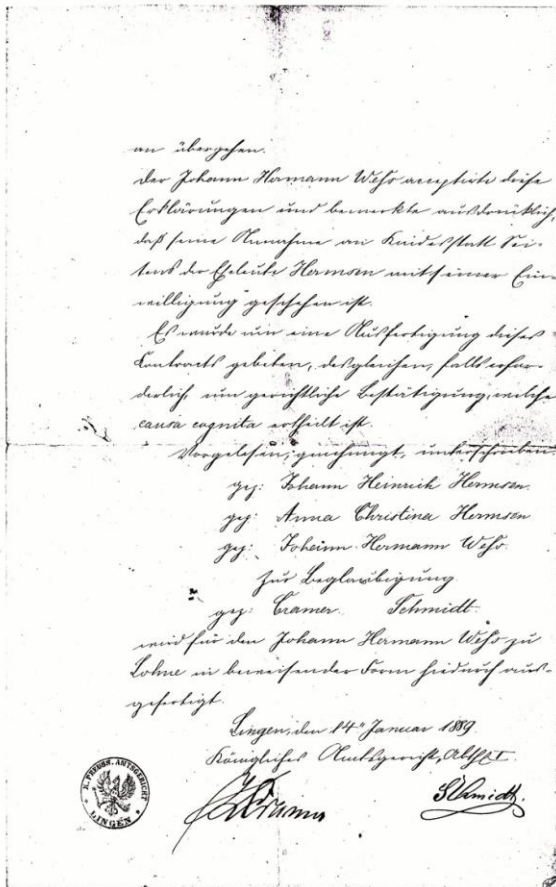 an übergehen.
Der Johann Hermann Wehs acceptirte diese
Erklärungen und bemerkte ausdrücklich,
daß seine Annahme an Kindesstatt Sei-
tens der Eheleute Hermsen mit seiner Ein-
willigung geschehen ist.
Es wurde um eine Ausfertigung dieses
Contracts gebeten, desgleichen, falls erfor-
derlich, um gerichtliche Bestätigung, welche
causa cognita ertheilt ist.
Vorgelesen, genehmigt, unterschrieben.
gez: Johann Heinrich Hermsen.
gez: Anna Christina Hermsen
gez: Johann Hermann Wehs.
Zur Beglaubigung.
gez: Cramer. Schmidt.
wird für den Johann Hermann Wehs zu
Lohne in beweisender Form hiedurch aus-
gefertigt.
Lingen, den 14ⁿ Januar 1889.
Königliches Amtsgericht, Abth I
K. PREUSS. AMTSGERICHT
LINGEN
Cramer Schmidt.